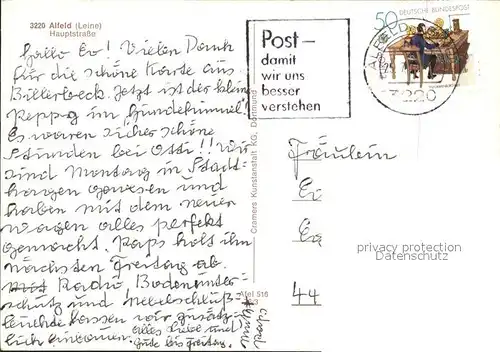 3220 Alfeld (Leine)
Hauptstraße
Hallo Ev! Vielen Dank
für die schöne Karte aus
Billerbeck. Jetzt ist der kleine
Peppo im "Hundehimmel"!
Es waren sicher schöne
Stunden bei Otti!! Wir
sind Montag in Stadt-
hagen gewesen und
haben mit dem neuen
Wagen alles perfekt
gemacht. Paps holt ihn
nächsten Freitag ab.
Radio, Bodenunter-
schutz und Nebelschluß-
leuchte lassen wir zusätz-
lich einbauen.
alles Liebe und
Gute bis Freitag.
Cramers Kunstanstalt KG, Dortmund
Afel 516
50
DEUTSCHE BUNDESPOST
ALFELD
3220
Post –
damit
wir uns
besser
verstehen
Fräulein
Ev
44
privacy protection
Datenschutz